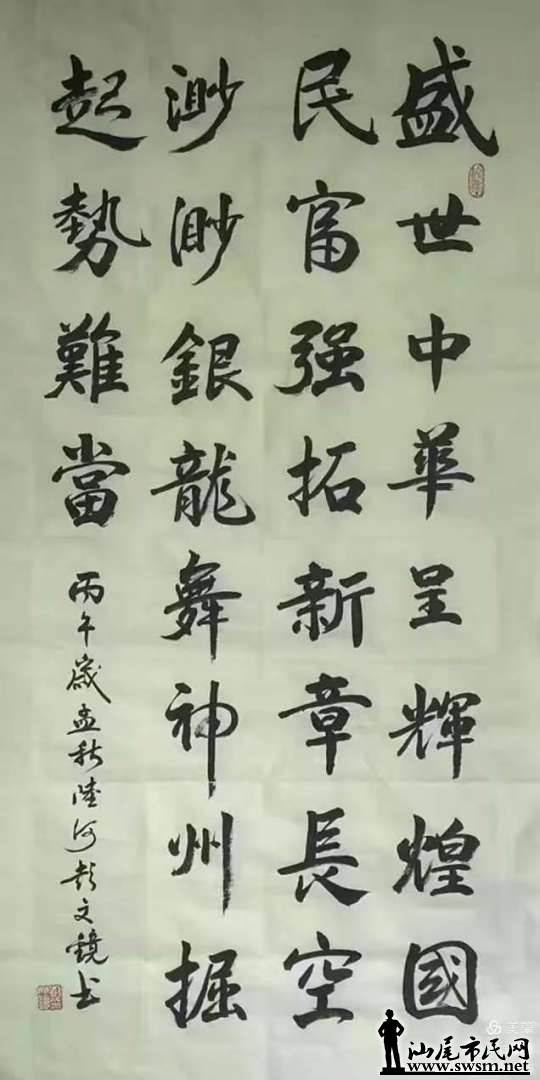 盛世中華呈輝煌國
民富强拓新章長空
渺渺銀龍舞神州掘
起勢難當
丙午歲孟秋陸河彭文鏡书
汕尾市民网
www.swsm.net